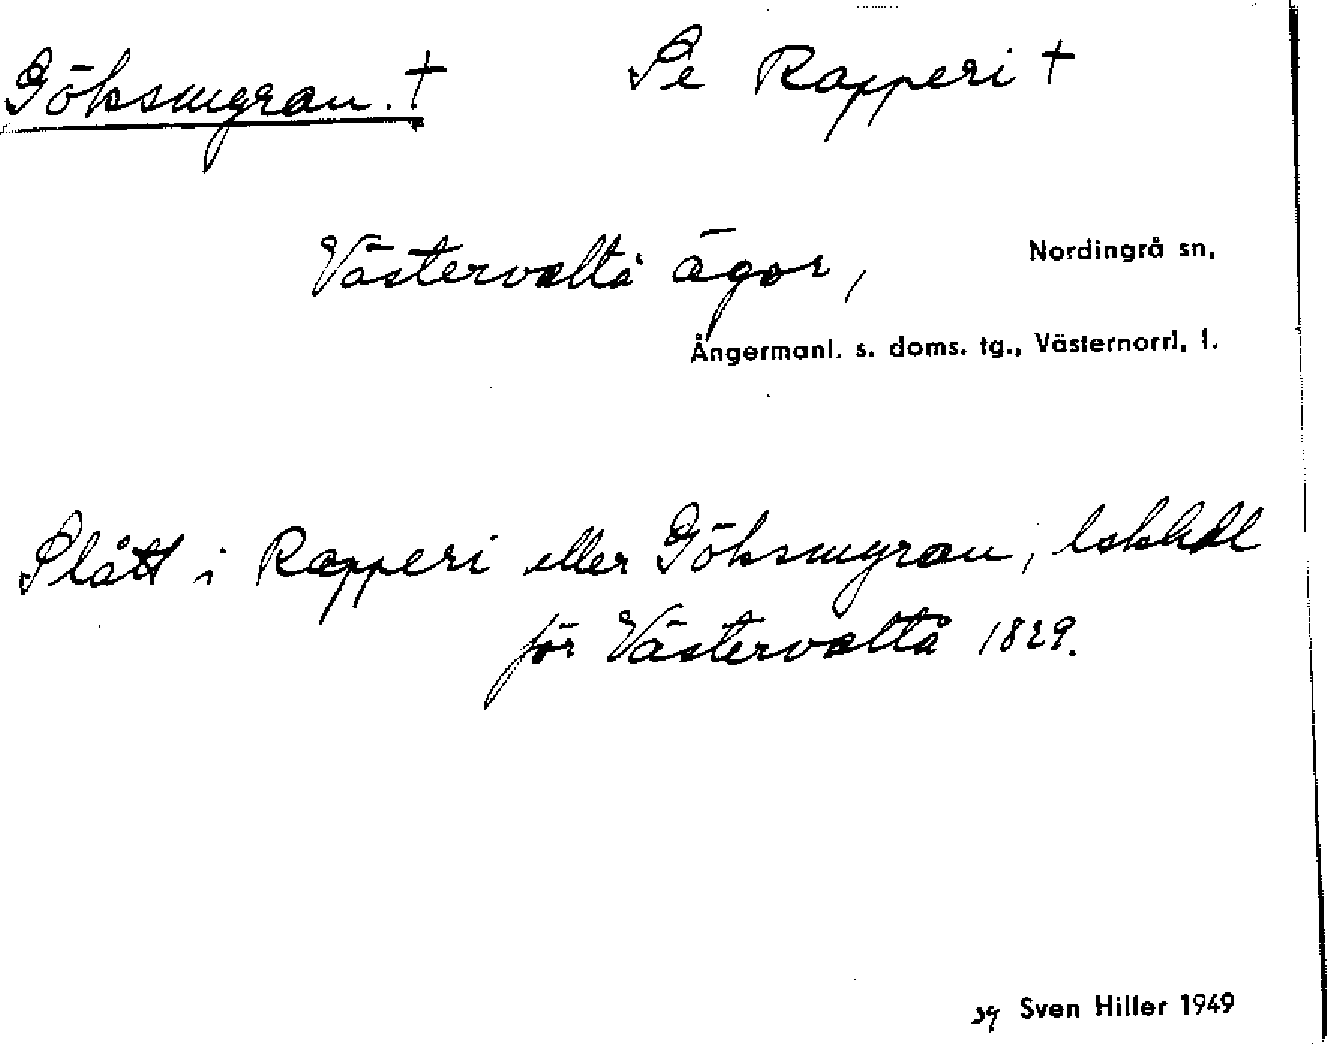 Göksmyran. † Se Rapperi †
Västervaltå ägor, Nordingrå sn,
Ångermanl. s. doms. tg., Västernorrl. l.
Slått i Rapperi eller Göksmyran,
för Västervaltå 1829.
Sven Hiller 1949